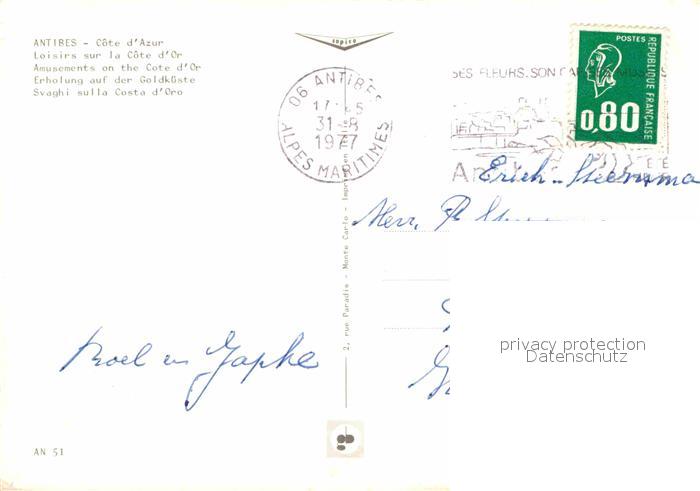 ANTIBES - Côte d'Azur
Loisirs sur la Côte d'Or
Amusements on the Cote d'Or
Erholung auf der Goldküste
Svaghi sulla Costa d'Oro
sapico
06 ANTIBES
31-8
1977
ALPES MARITIMES
SES FLEURS. SON
POSTES
REPUBLIQUE FRANÇAISE
0,80
Herr
2, rue Paradis - Monte Carlo - Imprimé en
Roel en Japke
privacy protection
Datenschutz
AN 51